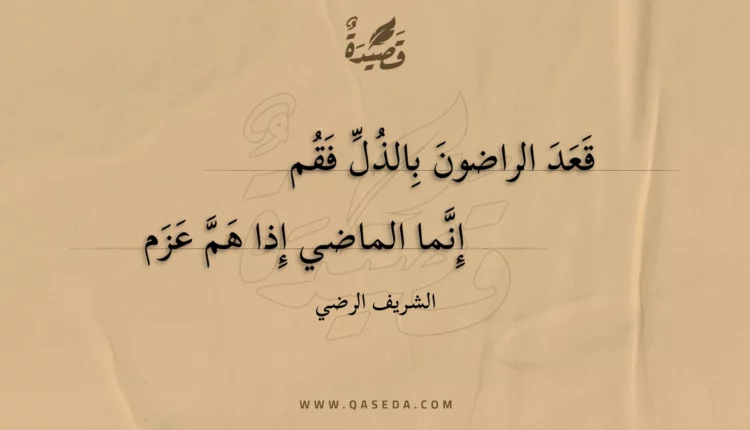 قَصِيدَةٌ
قَعَدَ الراضونَ بِالذُلِّ فَقُم
إِنَّما الماضي إِذا هَمَّ عَزَم
الشريف الرضي
WWW.QASEDA.COM